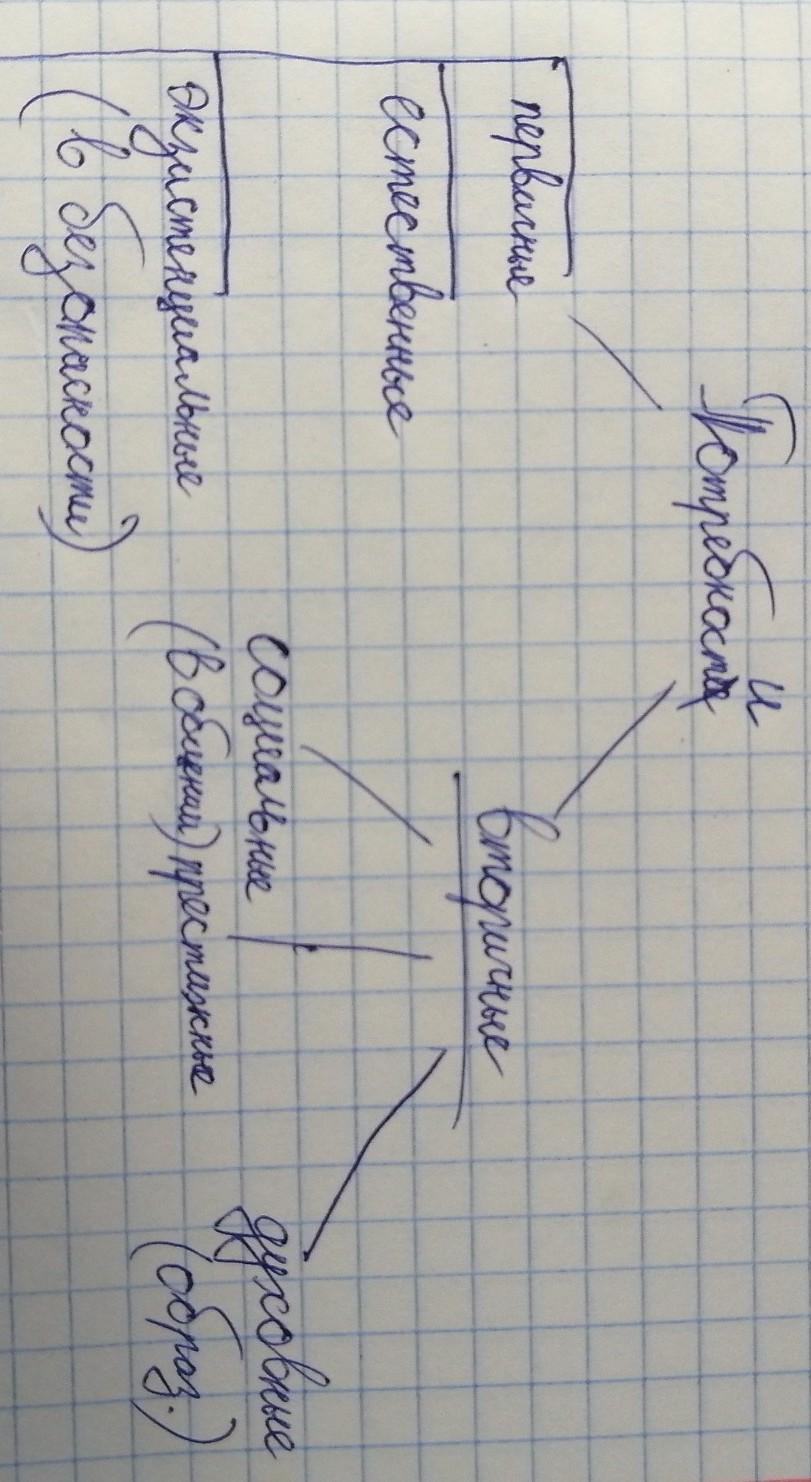 Потребности
первичные
вторичные
естественные
экзистенциальные
(в безопасности)
социальные
(в общении)
престижные
духовные
(образ.)